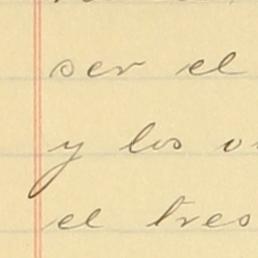 ser el
y los
el tres